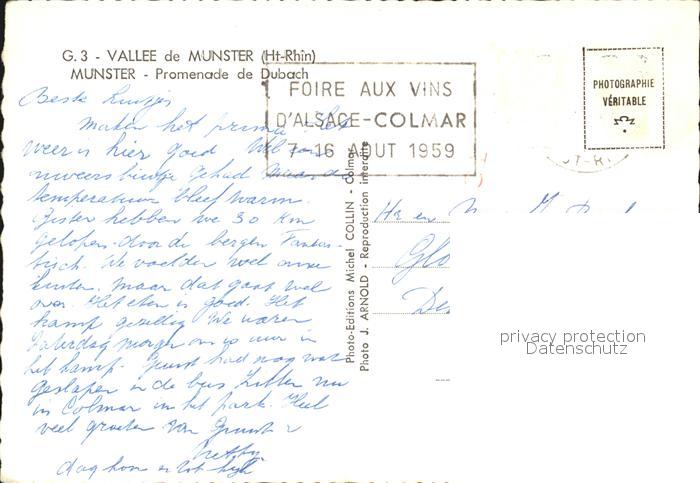 G.3 - VALLEE de MUNSTER (Ht-Rhin)
MUNSTER - Promenade de Dubach
FOIRE AUX VINS
D'ALSACE-COLMAR
7-16 AOUT 1959
PHOTOGRAPHIE
VÉRITABLE
Beste luitjes
Maken het prima. Het
weer is hier goed Wel een
onweersbuitje gehad maar de
temperatuur bleef warm.
Gister hebben we 30 km
gelopen door de bergen Fantas-
tisch. We voelden wel onze
maar dat gaat wel
over. Het eten is goed. Het
kamp gezellig We waren
Zaterdag morgen om uur in
het kamp. had nog wat
geslapen in de bus Zitten nu
in Colmar in het park. Heel
veel groeten van
dag hoor en tot
Photo-Editions Michel COLLIN - Colmar
Photo J. ARNOLD - Reproduction interdite
Hr en
Glo
De
privacy protection
Datenschutz